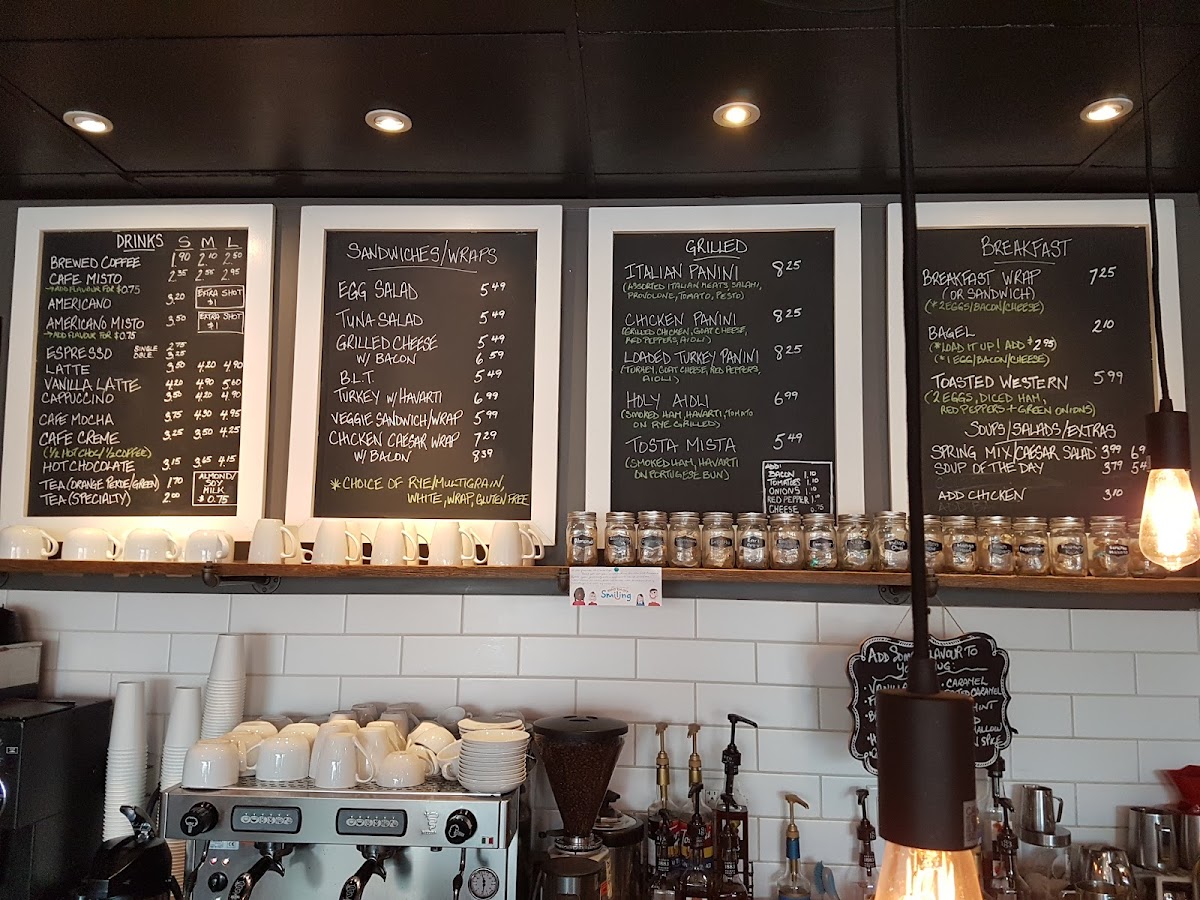 DRINKS S M L
BREWED COFFEE 1.90 2.10 2.50
CAFE MISTO 2.35 2.55 2.95
→ADD FLAVOUR FOR $0.75
AMERICANO 3.20
EXTRA SHOT
$1
AMERICANO MISTO 3.50
EXTRA SHOT
$1
→ADD FLAVOUR FOR $0.75
ESPRESSO SINGLE 2.75
DBLE. 3.25
LATTE 3.50 4.20 4.90
VANILLA LATTE 4.20 4.90 5.60
CAPPUCCINO 3.50 4.20 4.90
CAFE MOCHA 3.75 4.30 4.95
CAFE CREME 3.25 3.50 4.25
(½ HOT CHOC/ ½ COFFEE)
HOT CHOCOLATE 3.15 3.65 4.15
TEA (ORANGE PEKOE/GREEN) 1.70
TEA (SPECIALTY) 2.00
ALMOND/
SOY
MILK
$0.75
SANDWICHES/WRAPS
EGG SALAD 5.49
TUNA SALAD 5.49
GRILLED CHEESE 5.49
W/ BACON 6.59
B.L.T. 5.49
TURKEY W/HAVARTI 6.99
VEGGIE SANDWICH/WRAP 5.99
CHICKEN CAESAR WRAP 7.29
W/ BACON 8.39
*CHOICE OF RYE/MULTIGRAIN,
WHITE, WRAP, GLUTEN FREE
GRILLED
ITALIAN PANINI 8.25
(ASSORTED ITALIAN MEATS, SALAMI,
PROVOLONE, TOMATO, PESTO)
CHICKEN PANINI 8.25
(GRILLED CHICKEN, GOAT CHEESE,
RED PEPPERS, AIOLI)
LOADED TURKEY PANINI 8.25
(TURKEY, GOAT CHEESE, RED PEPPERS,
AIOLI)
HOLY AIOLI 6.99
(SMOKED HAM, HAVARTI, TOMATO
ON RYE GRILLED)
TOSTA MISTA 5.49
(SMOKED HAM, HAVARTI
ON PORTUGESE BUN)
ADD:
BACON 1.10
TOMATOES 1.10
ONIONS 1.10
RED PEPPER 1.10
CHEESE 0.75
BREAKFAST
BREAKFAST WRAP 7.25
(OR SANDWICH)
(*2 EGGS/BACON/CHEESE)
BAGEL 2.10
(*LOAD IT UP! ADD $2.95)
(*1 EGG/BACON/CHEESE)
TOASTED WESTERN 5.99
(2 EGGS, DICED HAM,
RED PEPPERS + GREEN ONIONS)
SOUPS/SALADS/EXTRAS
SPRING MIX/CAESAR SALAD 3.99
SOUP OF THE DAY 3.79
ADD CHICKEN 3.10
Smiling
ADD SOME FLAVOUR TO
CARAMEL